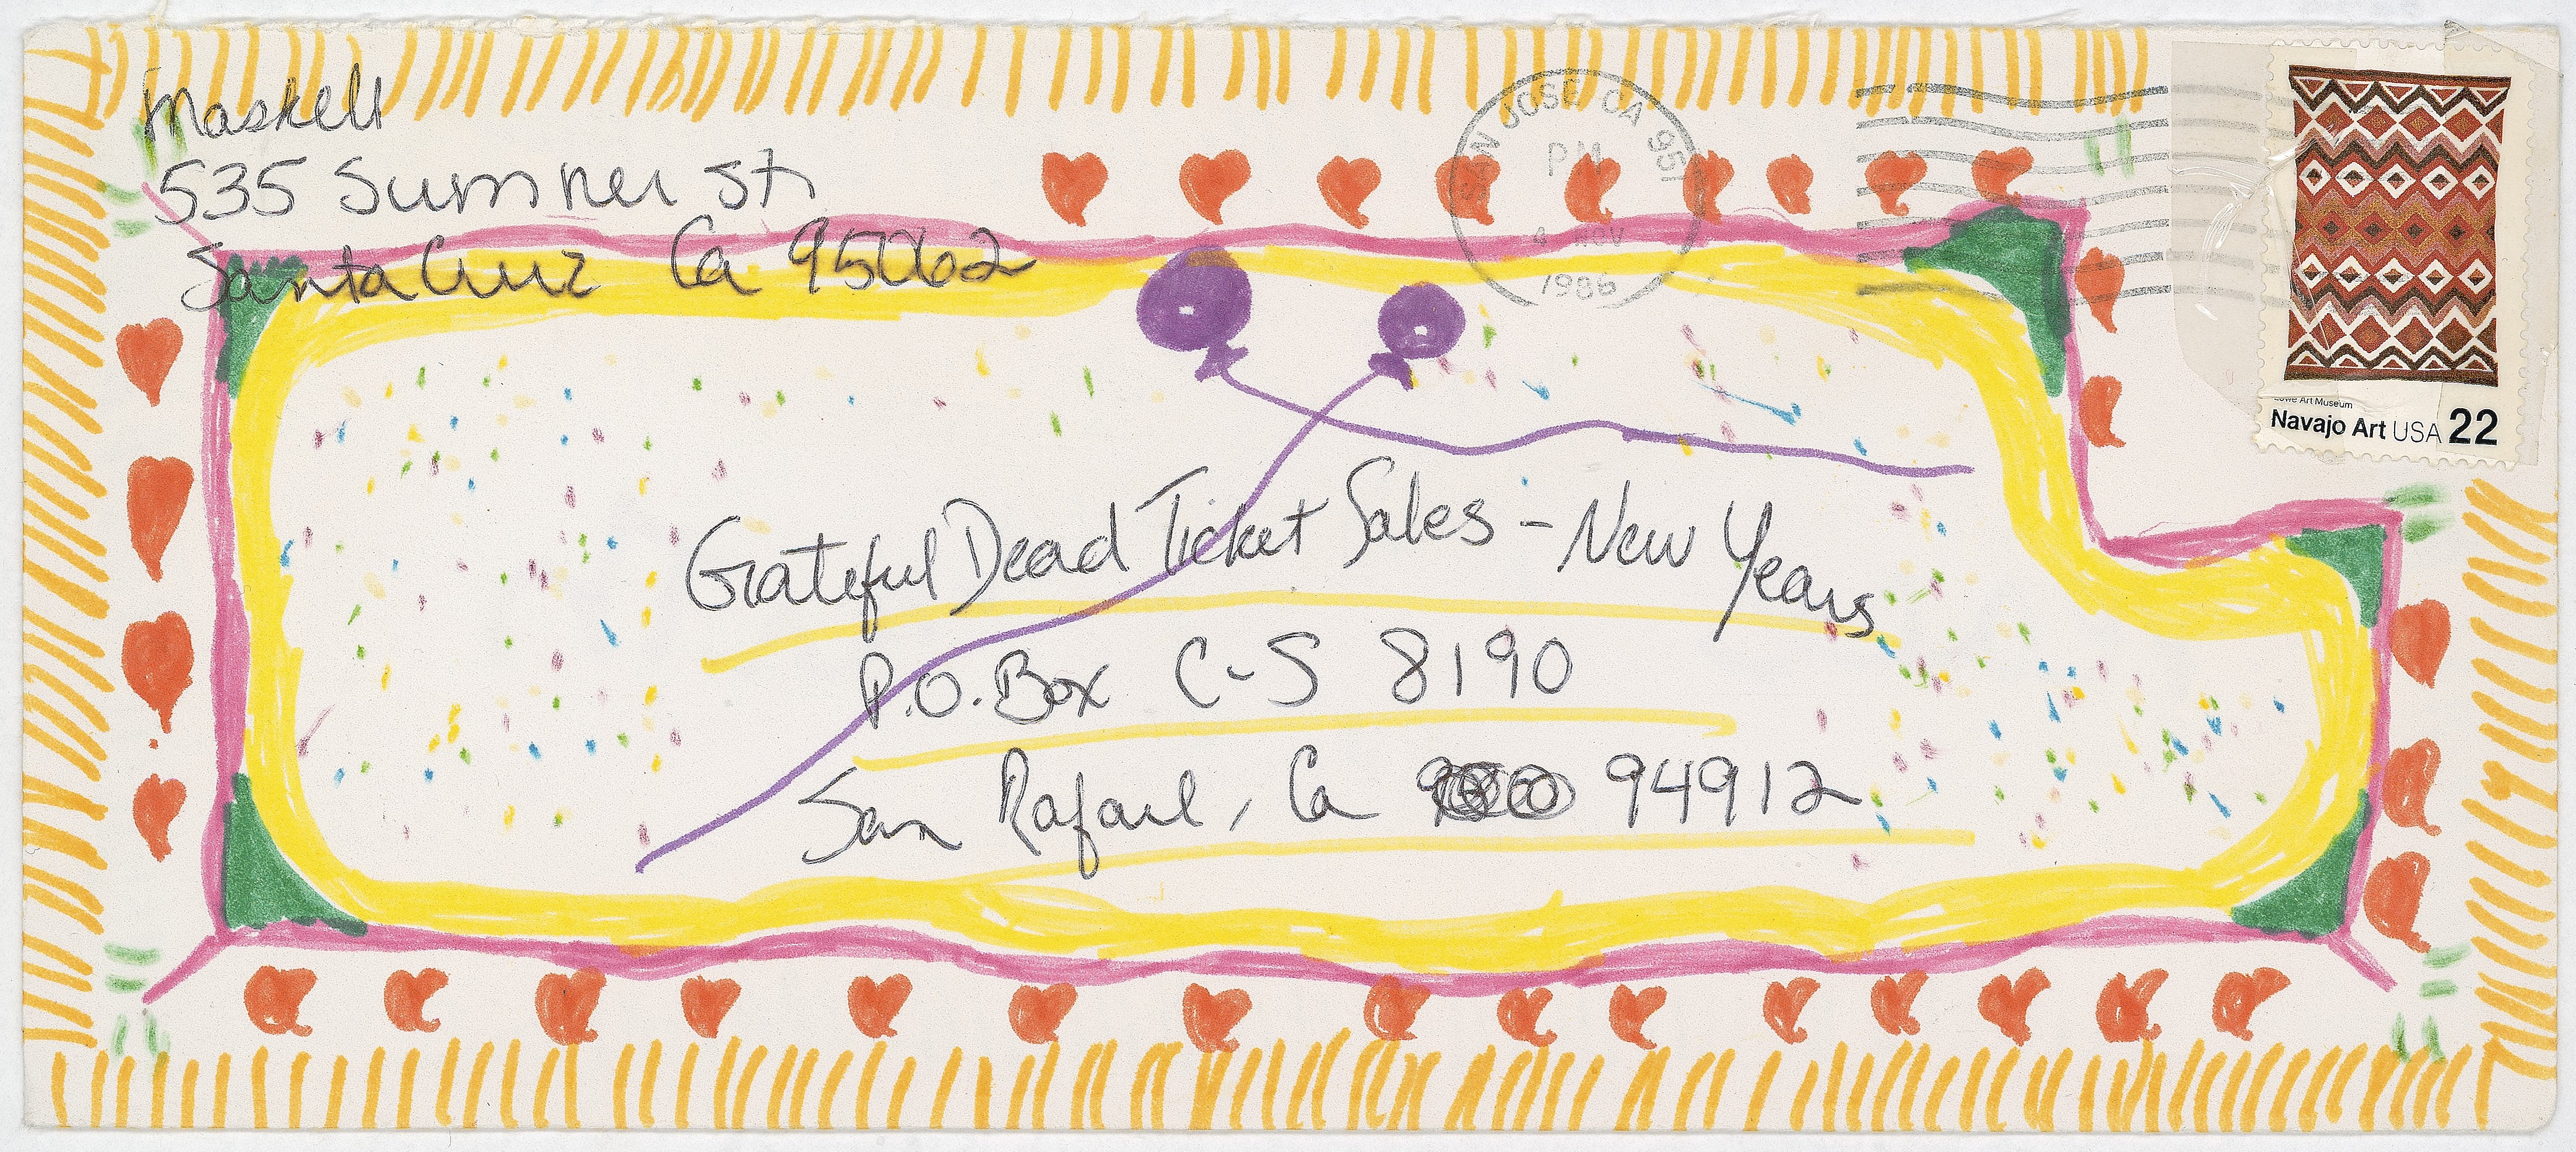 Maskell
535 Sumner St
Santa Cruz Ca 95062
SAN JOSE CA 951
PM
4 NOV
1986
Lowe Art Museum
Navajo Art USA 22
Grateful Dead Ticket Sales - New Years
P.O. Box C-S 8190
San Rafael, Ca 94912